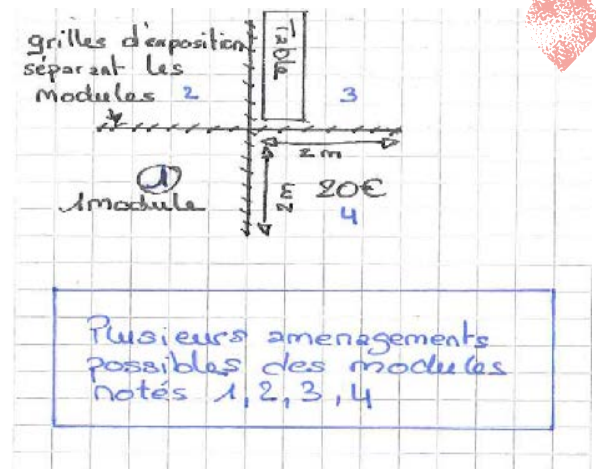 grilles d'exposition
séparant les
modules 2
Table
3
2m
1
1module
2m
20€
4
Plusieurs amenagements
possibles des modules
notés 1, 2, 3, 4